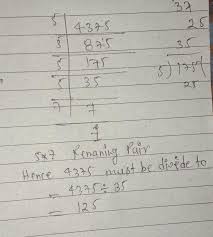 5 | 4375
5 | 875
5 | 175
5 | 35
7 | 7
1
37
25
35
5) 175 (
25
5x7 Remaning Pair
Hence 4375 must be divide to
= 4375 ÷ 35
= 125